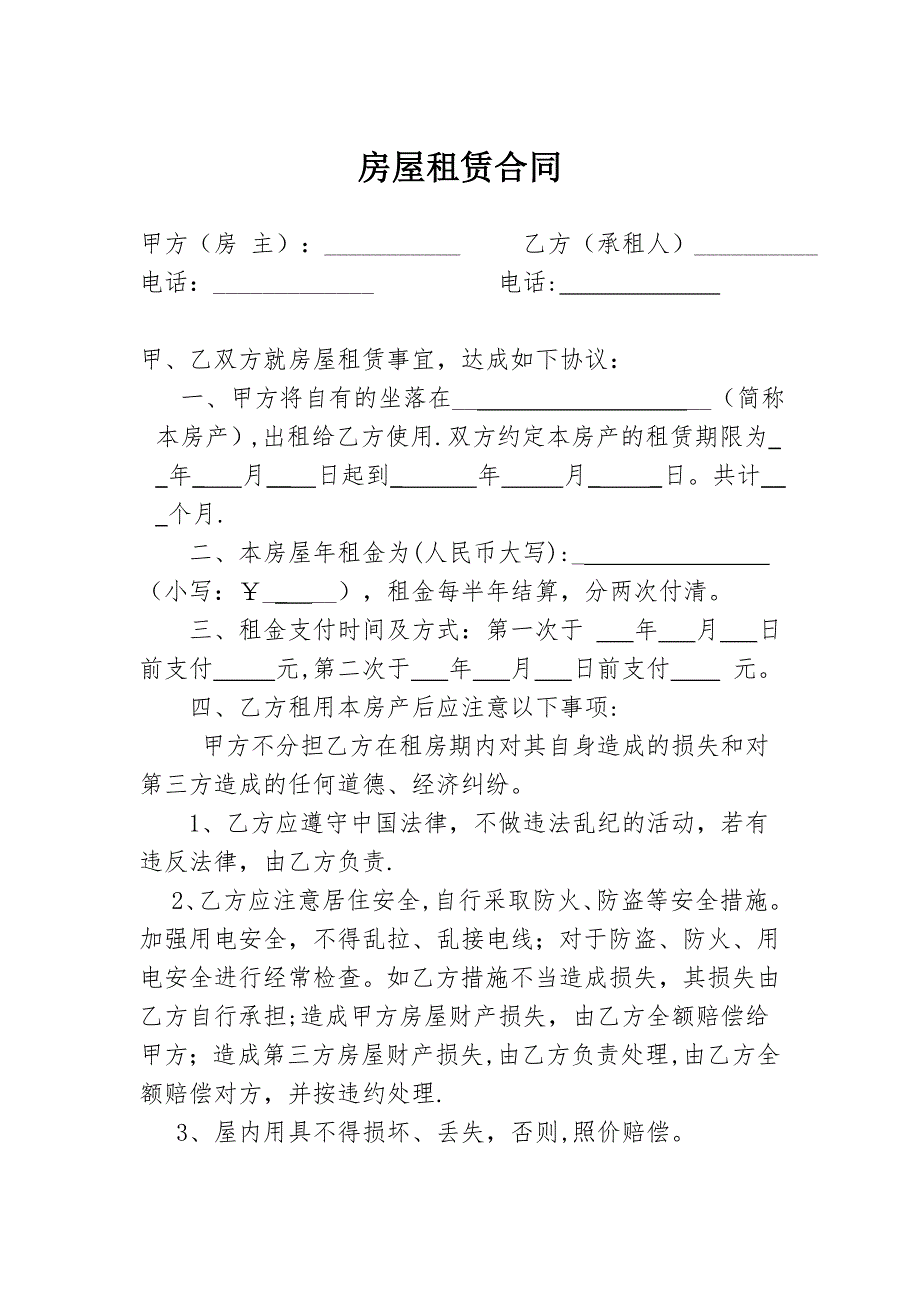 房屋租赁合同
甲方（房 主）：___________ 乙方（承租人）__________
电话：_____________ 电话:_____________
甲、乙双方就房屋租赁事宜，达成如下协议：
一、甲方将自有的坐落在_____________________（简称
本房产）,出租给乙方使用.双方约定本房产的租赁期限为_
_年____月____日起到_______年_____月______日。共计__
_个月.
二、本房屋年租金为(人民币大写):________________
（小写：￥______），租金每半年结算，分两次付清。
三、租金支付时间及方式：第一次于 ___年___月___日
前支付_____元,第二次于___年___月___日前支付____ 元。
四、乙方租用本房产后应注意以下事项:
甲方不分担乙方在租房期内对其自身造成的损失和对
第三方造成的任何道德、经济纠纷。
1、乙方应遵守中国法律，不做违法乱纪的活动，若有
违反法律，由乙方负责.
2、乙方应注意居住安全,自行采取防火、防盗等安全措施。
加强用电安全，不得乱拉、乱接电线；对于防盗、防火、用
电安全进行经常检查。如乙方措施不当造成损失，其损失由
乙方自行承担;造成甲方房屋财产损失，由乙方全额赔偿给
甲方；造成第三方房屋财产损失,由乙方负责处理,由乙方全
额赔偿对方，并按违约处理.
3、屋内用具不得损坏、丢失，否则,照价赔偿。